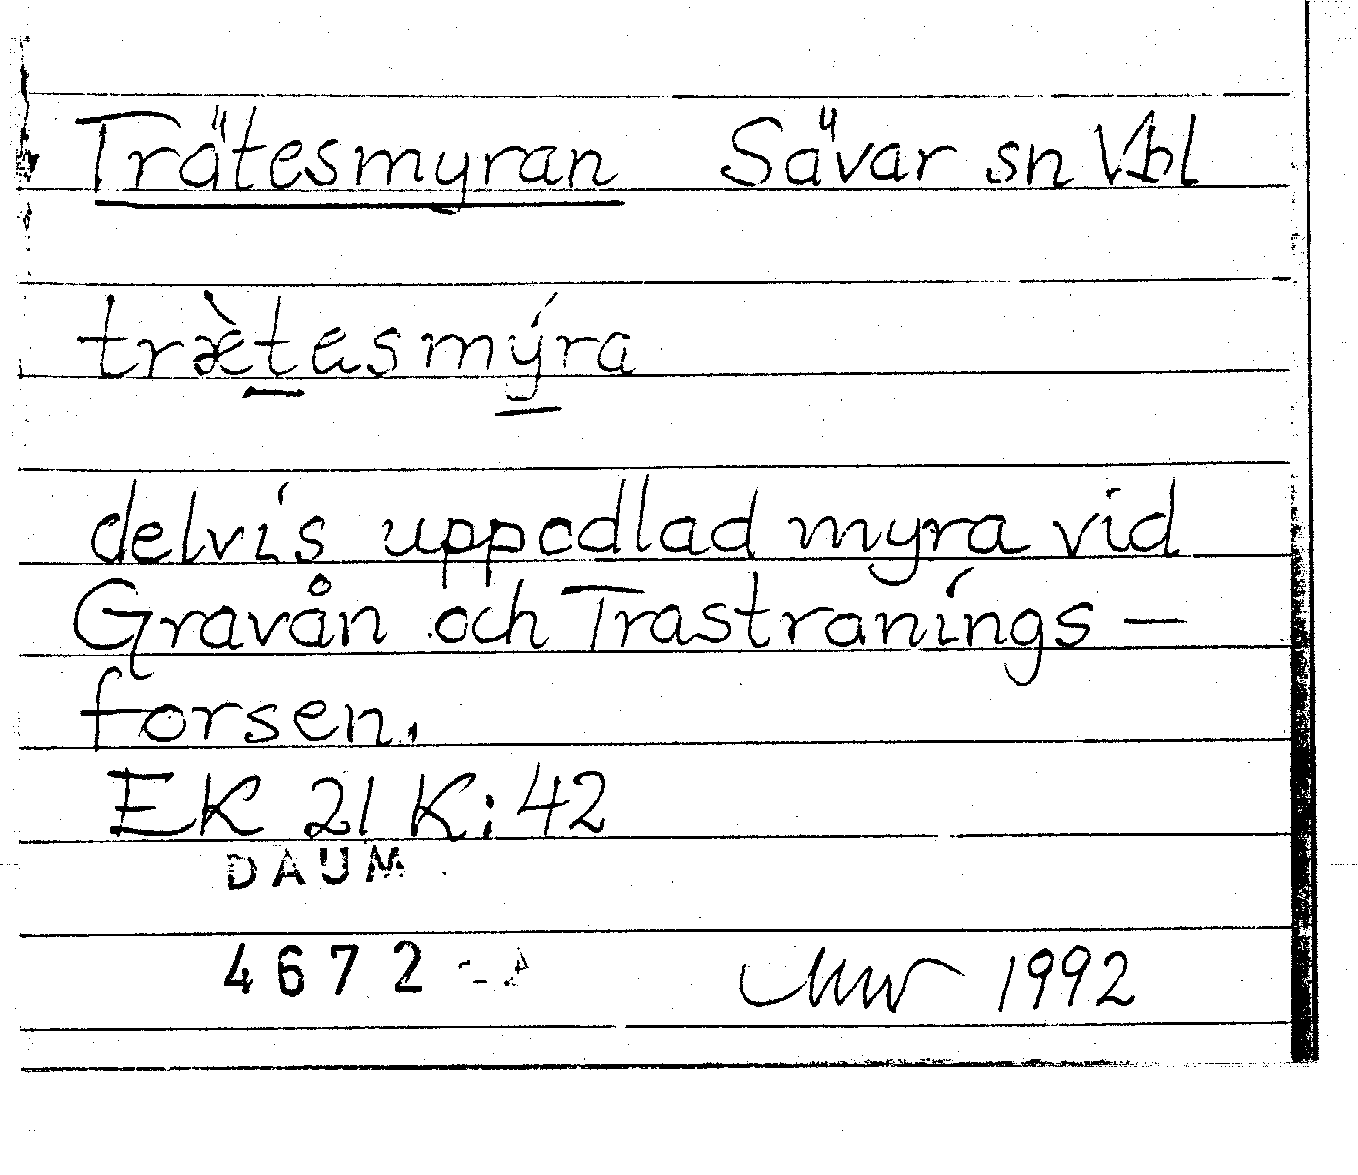 Trätesmyran Sävar sn Vbl
træ̀tesmýra
delvis uppodlad myra vid
Gravån och Trastranings-
forsen.
EK 21 K:42
DAUM
4672
1992